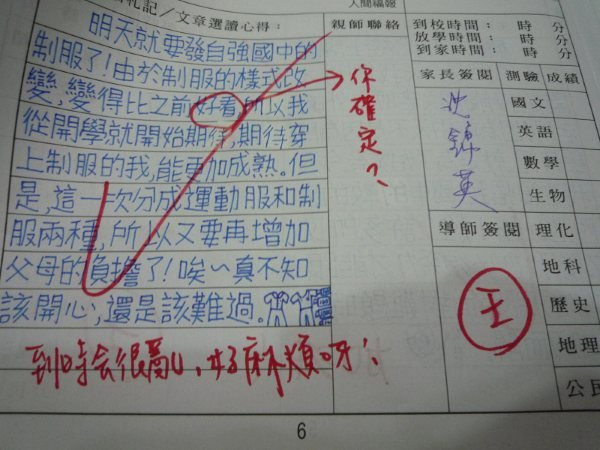 人間福報
札記／文章選讀心得：
親師聯絡
到校時間： 時 分
放學時間： 時 分
到家時間： 時 分
明天就要發自強國中的
制服了！由於制服的樣式改
變，變得比之前好看，所以我
從開學就開始期待，期待穿
上制服的我，能更加成熟。但
是，這一次分成運動服和制
服兩種，所以又要再增加
父母的負擔了！唉～真不知
該開心，還是該難過。
你確定？
到時会很亂，好麻煩呀！
家長簽閱
測驗 成績
沈錦英
國文
英語
數學
生物
導師簽閱
理化
地科
歷史
地理
公民
王
6